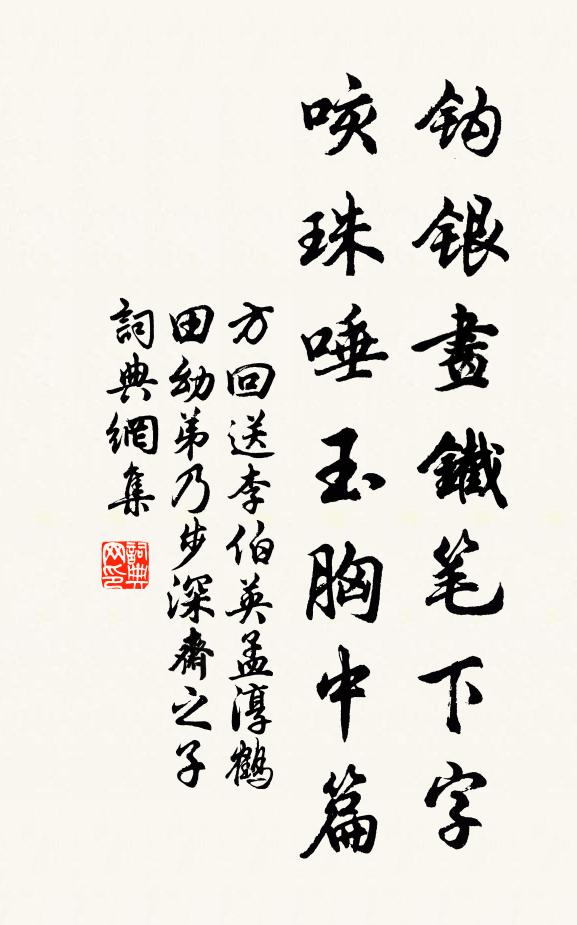 鈎銀畫鐵笔下字
咳珠唾玉胸中篇
方回送李伯英孟淳鶴
田幼弟乃步深齋之子
詞典網集
詞典网印